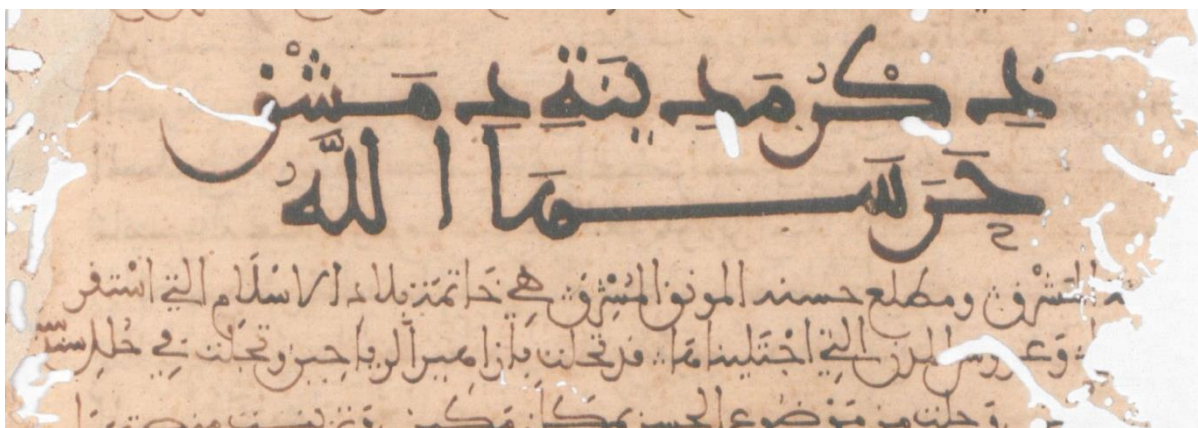 ذِكْرُ مَدِينَةِ دِمَشْق
حَرَسَهَا اللَّهُ
المشرق ومطلع حسنه المونق المُشْرِق هي خَاتمَة بلاد الاسْلَام التي استقر
وَعروس المدن التي اجْتَليناهَا قد تحلت بأزاهير الرياحين وتجلت في حُلل سند
وَحلت من مَوْضوع الحسن بمكَان مَكين وتزينت